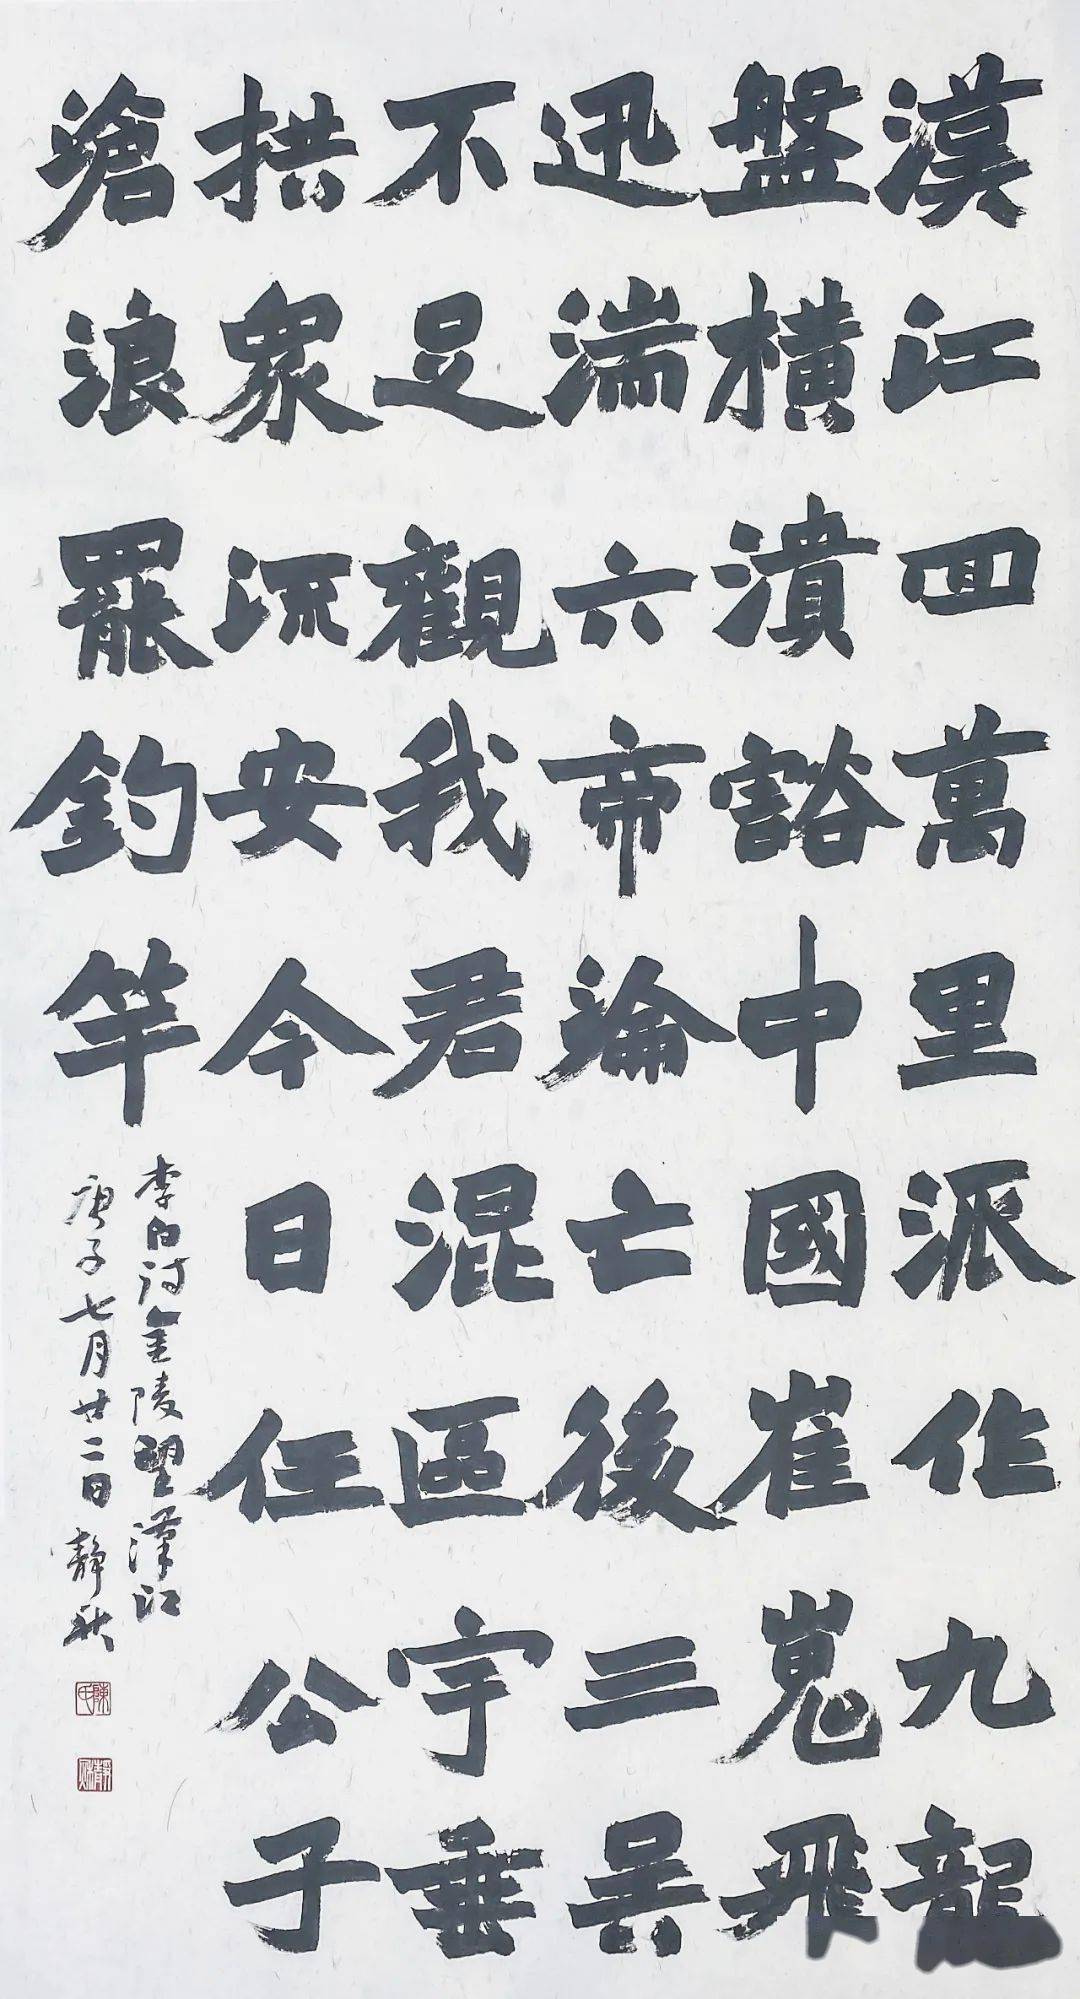 漢江回萬里派作九龍
盤橫潰豁中國崔嵬飛
迅湍六帝淪亡後三吳
不足觀我君混區宇垂
拱衆流安今日任公子
滄浪罷釣竿
李白诗金陵望漢江
庚子七月廿二日靜秋
陳氏
靜秋